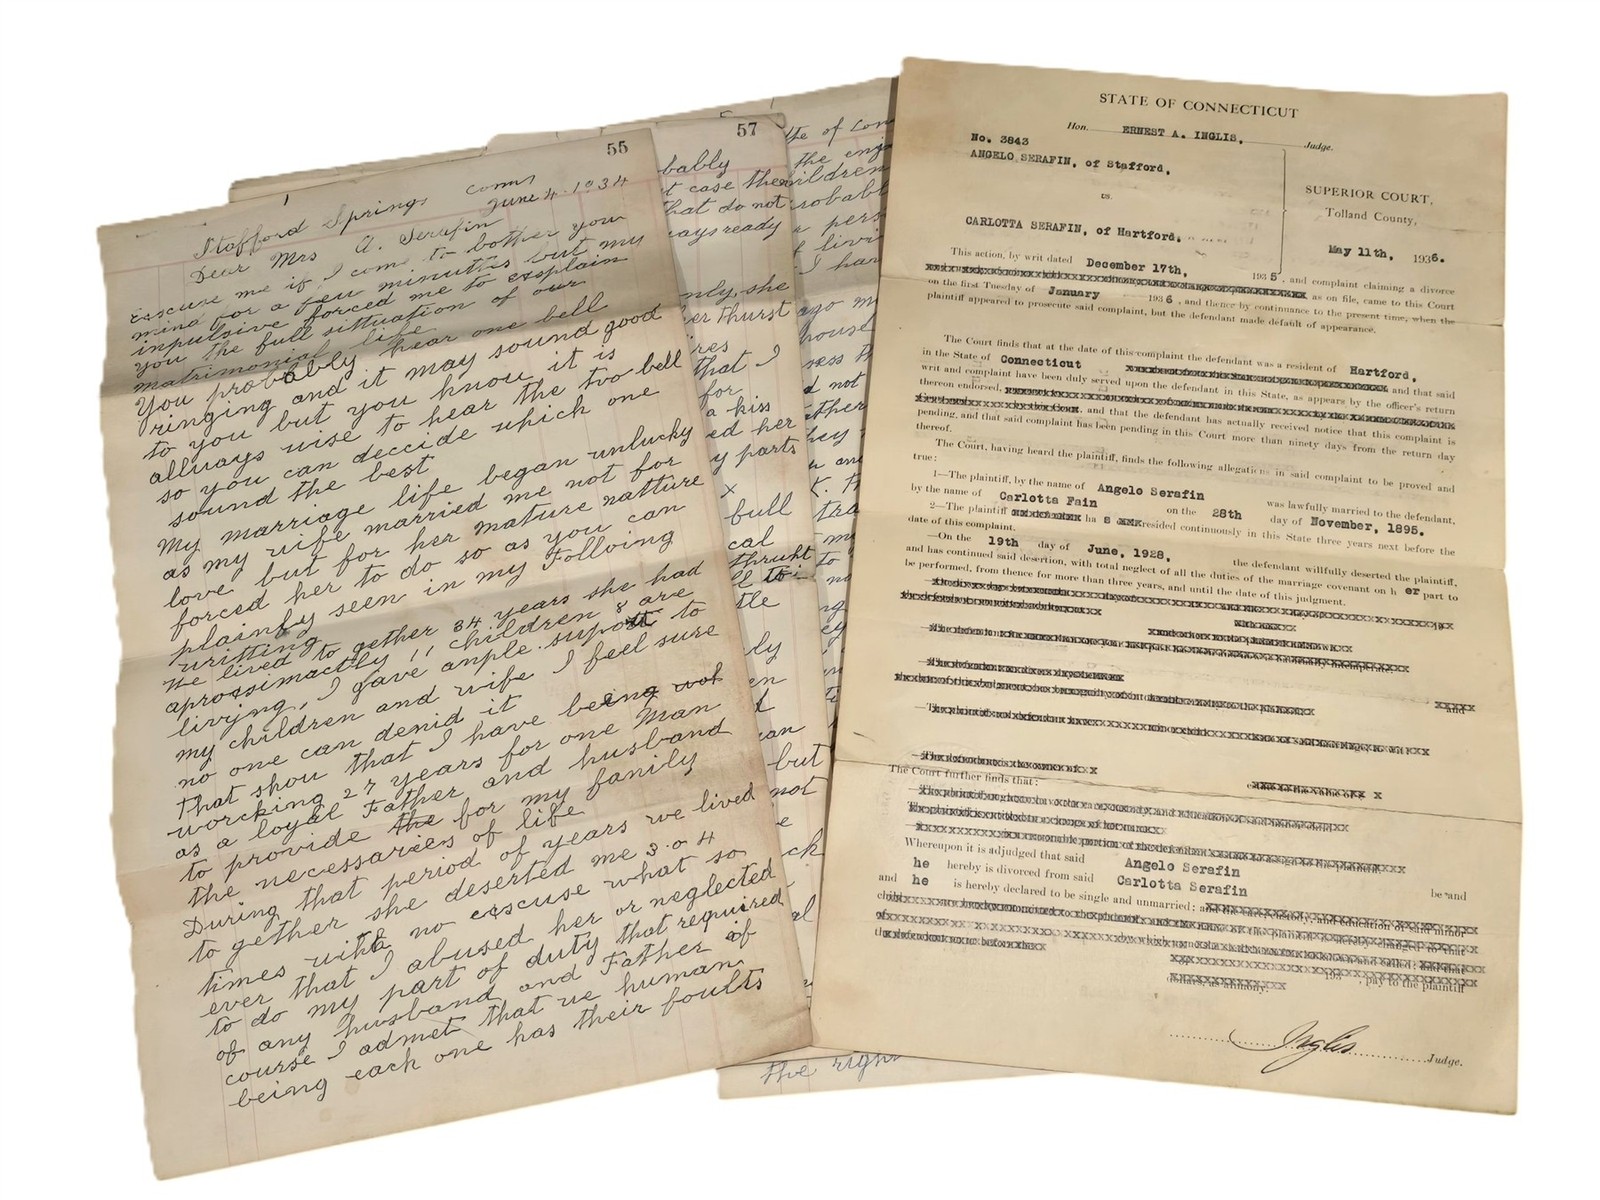 55
Stafford Springs Conn
June 4. 1934
Dear Mrs A. Serafin
Excuse me if I come to bother you
mind for a feu minutis but my
inpulsive forced me to exsplain
you the full sittuation of our
matrimonial life
You probably hear one bell
ringing and it may sound good
to you but you know it is
allways wise to hear the two bell
so you can deccide which one
sound the best
My marriage life began unlucky
as my wife married me not for
love but for her mature natture
forced her to do so as you can
plainly seen in my Folloving
writting
We lived to gether 34 years she had
aprossimactly 11 children 8 are
living, I gave ample suport to
my children and wife I feel sure
no one can denid it
that shou that I have being
worcking 27 years for one Man
as a loyal Father and husband
to provide the for my family
the necessaries of life
During that period of years we lived
to gether she deserted me 3 o 4
times with no escuse what so
ever that I abused her or neglected
to do my part of duty that required
of any husband and Father of
course I admet that we human
being each one has their foults
57
bably
t case the
that do not
ways ready
nly, she
er thurst
res
that I
for
a kiss
ed her
y parts
x
full
cal
thruht
tle
ly
en
but
not
e
ck
al
the of Con
the enj
children
robabl
pers
f livi
I hav
ago m
house
d not
ather
hey
the righ
STATE OF CONNECTICUT
Hon. ERNEST A. INGLIS, Judge.
No. 3843
ANGELO SERAFIN, of Stafford,
vs.
CARLOTTA SERAFIN, of Hartford,
SUPERIOR COURT,
Tolland County,
May 11th, 1936.
This action, by writ dated December 17th, 1935, and complaint claiming a divorce
as on file, came to this Court
on the first Tuesday of January 1936, and thence by continuance to the present time, when the
plaintiff appeared to prosecute said complaint, but the defendant made default of appearance.
The Court finds that at the date of this complaint the defendant was a resident of Hartford,
in the State of Connecticut and that said
writ and complaint have been duly served upon the defendant in this State, as appears by the officer's return
thereon endorsed,
and that the defendant has actually received notice that this complaint is
pending, and that said complaint has been pending in this Court more than ninety days from the return day
thereof.
The Court, having heard the plaintiff, finds the following allegations in said complaint to be proved and
true:
1—The plaintiff, by the name of Angelo Serafin was lawfully married to the defendant,
by the name of Carlotta Fain on the 28th day of November, 1895.
2—The plaintiff has resided continuously in this State three years next before the
date of this complaint.
—On the 19th day of June, 1928, the defendant willfully deserted the plaintiff,
and has continued said desertion, with total neglect of all the duties of the marriage covenant on her part to
be performed, from thence for more than three years, and until the date of this judgment.
The Court further finds that:
Whereupon it is adjudged that said Angelo Serafin be and
he hereby is divorced from said Carlotta Serafin
and he is hereby declared to be single and unmarried;
Inglis Judge.